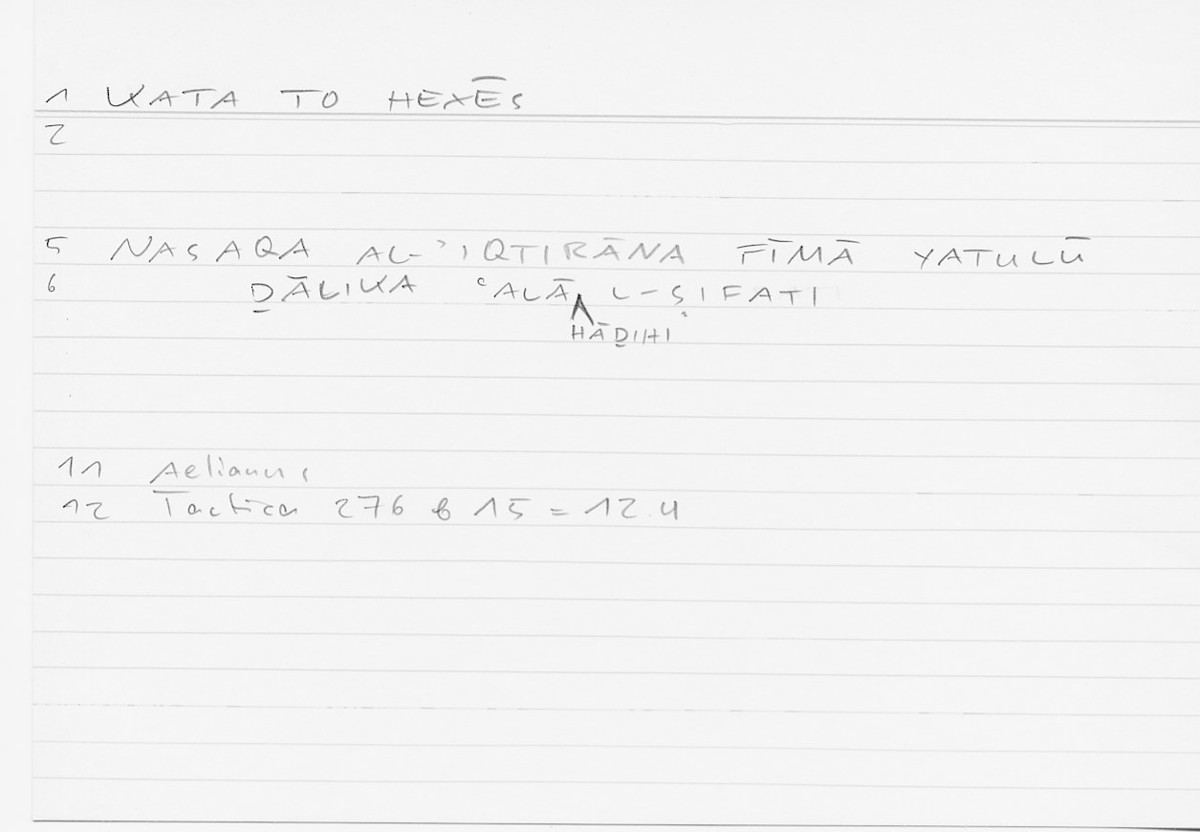 1 KATA TO HEXĒS
2
5 NASAQA AL-ʾIQTIRĀNA FĪMĀ YATULŪ
6 ḎĀLIKA ʿALĀ L-ṢIFATI
HĀḎIHI
11 Aelianus
12 Tactica 276 b 15 = 12.4